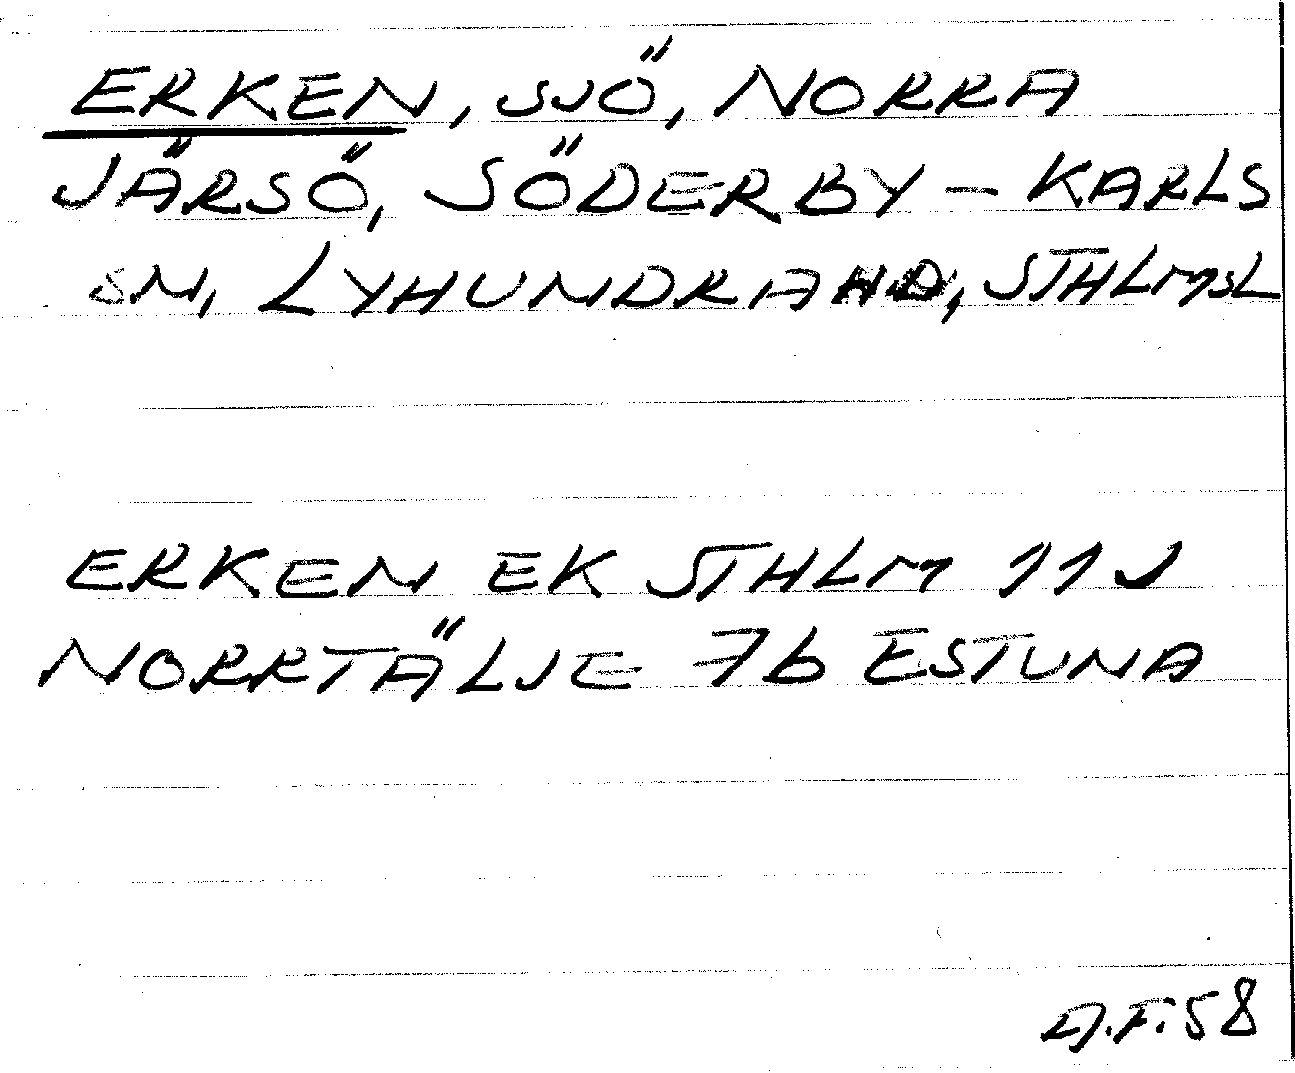 ERKEN, SJÖ, NORRA
JÄRSÖ, SÖDERBY-KARLS
SN, LYHUNDRA HD, STHLMSL
ERKEN EK STHLM 11J
NORRTÄLJE 7b ESTUNA
A.F. 58